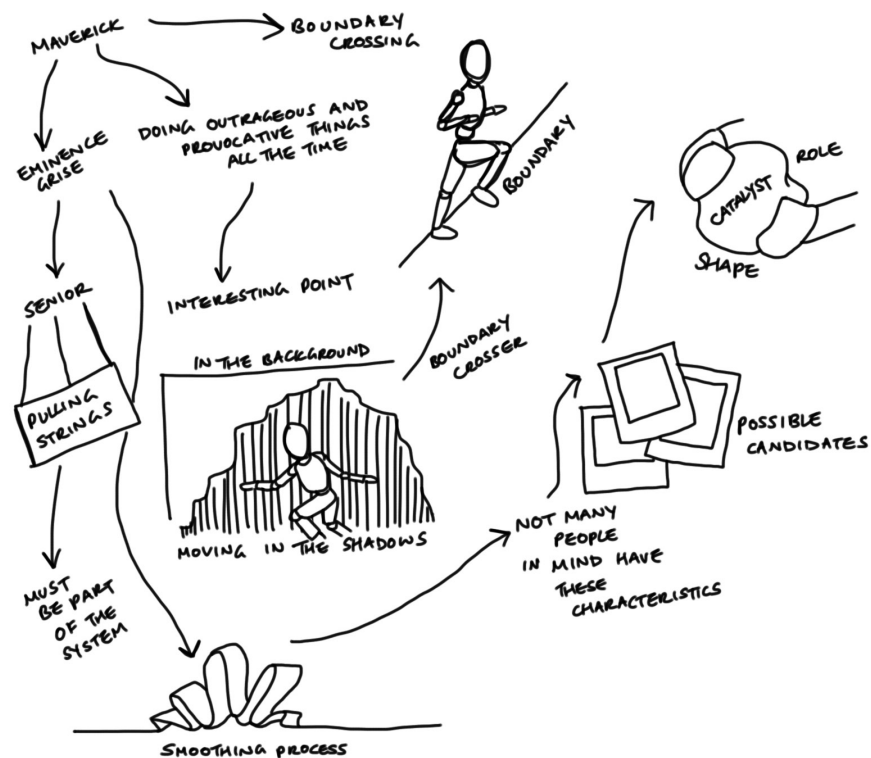 MAVERICK
BOUNDARY
CROSSING
EMINENCE
GRISE
DOING OUTRAGEOUS AND
PROVOCATIVE THINGS
ALL THE TIME
BOUNDARY
ROLE
CATALYST
SHAPE
SENIOR
INTERESTING POINT
IN THE BACKGROUND
BOUNDARY
CROSSER
PULLING
STRINGS
POSSIBLE
CANDIDATES
MOVING IN THE SHADOWS
NOT MANY
PEOPLE
IN MIND HAVE
THESE
CHARACTERISTICS
MUST
BE PART
OF THE
SYSTEM
SMOOTHING PROCESS